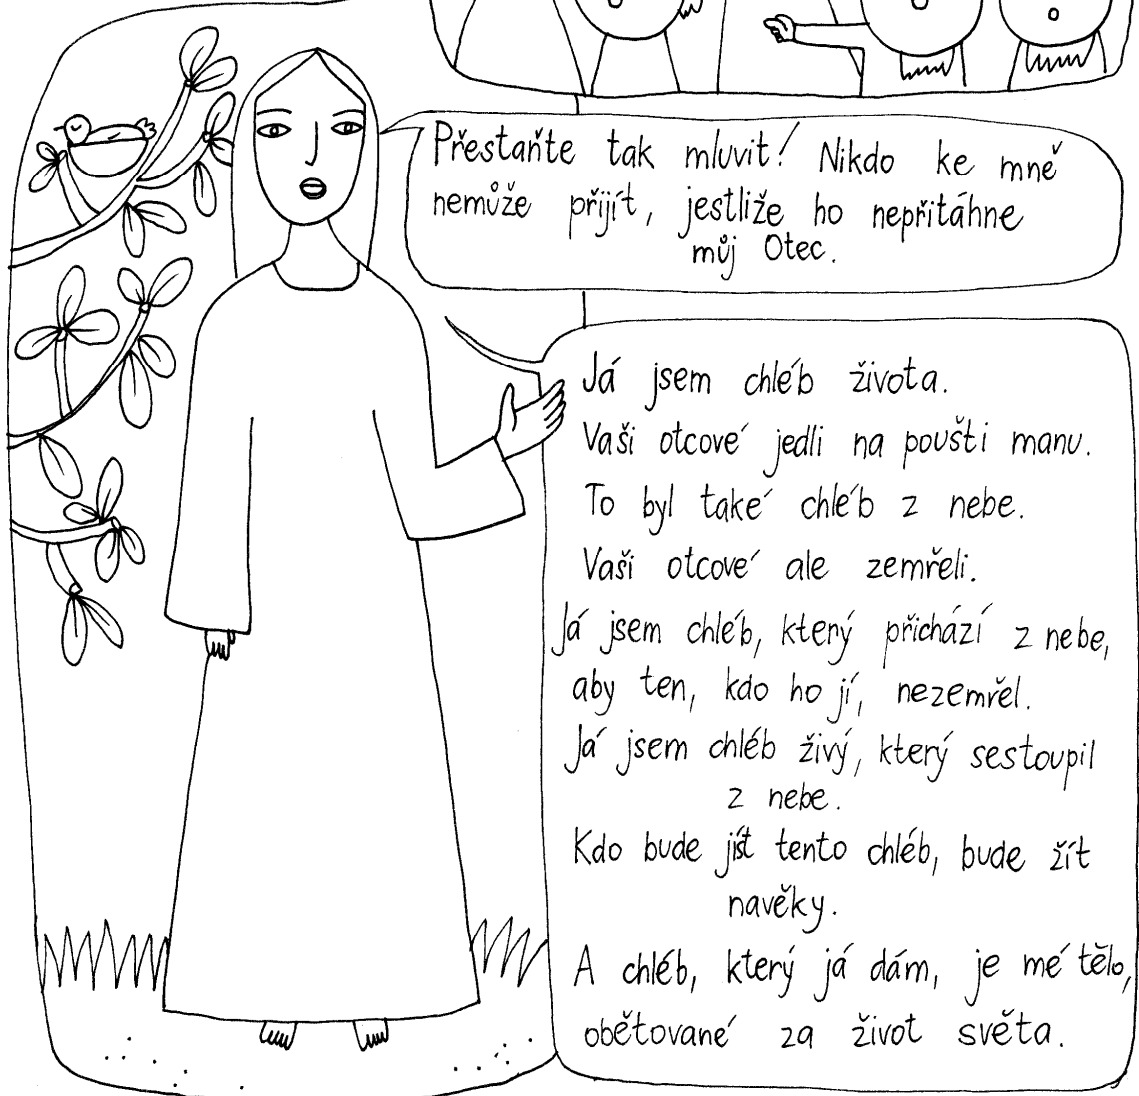 Přestaňte tak mluvit! Nikdo ke mně
nemůže přijít, jestliže ho nepřitáhne
můj Otec.
Já jsem chléb života.
Vaši otcové jedli na poušti manu.
To byl také chléb z nebe.
Vaši otcové ale zemřeli.
Já jsem chléb, který přichází z nebe,
aby ten, kdo ho jí, nezemřel.
Já jsem chléb živý, který sestoupil
z nebe.
Kdo bude jíst tento chléb, bude žít
navěky.
A chléb, který já dám, je mé tělo,
obětované za život světa.